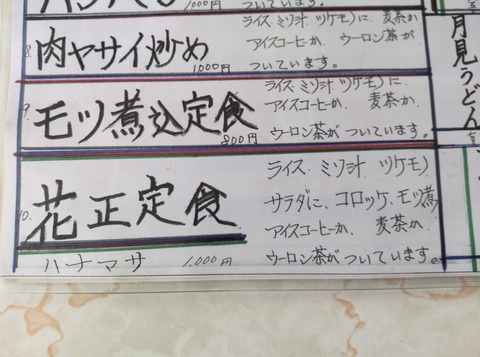 1000円
ついています。
8. 肉ヤサイ炒め
1000円
ライス ミソ汁 ツケモノに、麦茶か
アイスコーヒーか、ウーロン茶が
ついています。
9. モツ煮込定食
800円
ライス、ミソ汁 ツケモノに
アイスコーヒーか、麦茶か、
ウーロン茶がついています。
10. 花正定食
ハナマサ 1,000円
ライス、ミソ汁 ツケモノ
サラダに、コロッケ、モツ煮、
アイスコーヒーか、麦茶か、
ウーロン茶がついています。
月見うどん